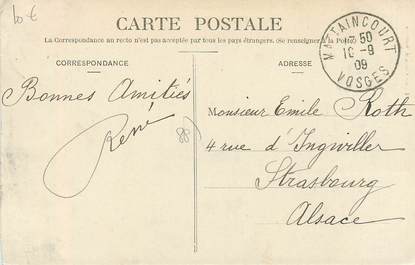 10 €
CARTE POSTALE
La Correspondance au recto n'est pas acceptée par tous les pays étrangers. (Se renseigner à la Poste)
CORRESPONDANCE
ADRESSE
MATTAINCOURT
50
10 - 9
09
VOSGES
Bonnes Amitiés
René
88
Monsieur Emile Roth
4 rue d'Ingwiller
Strasbourg
Alsace